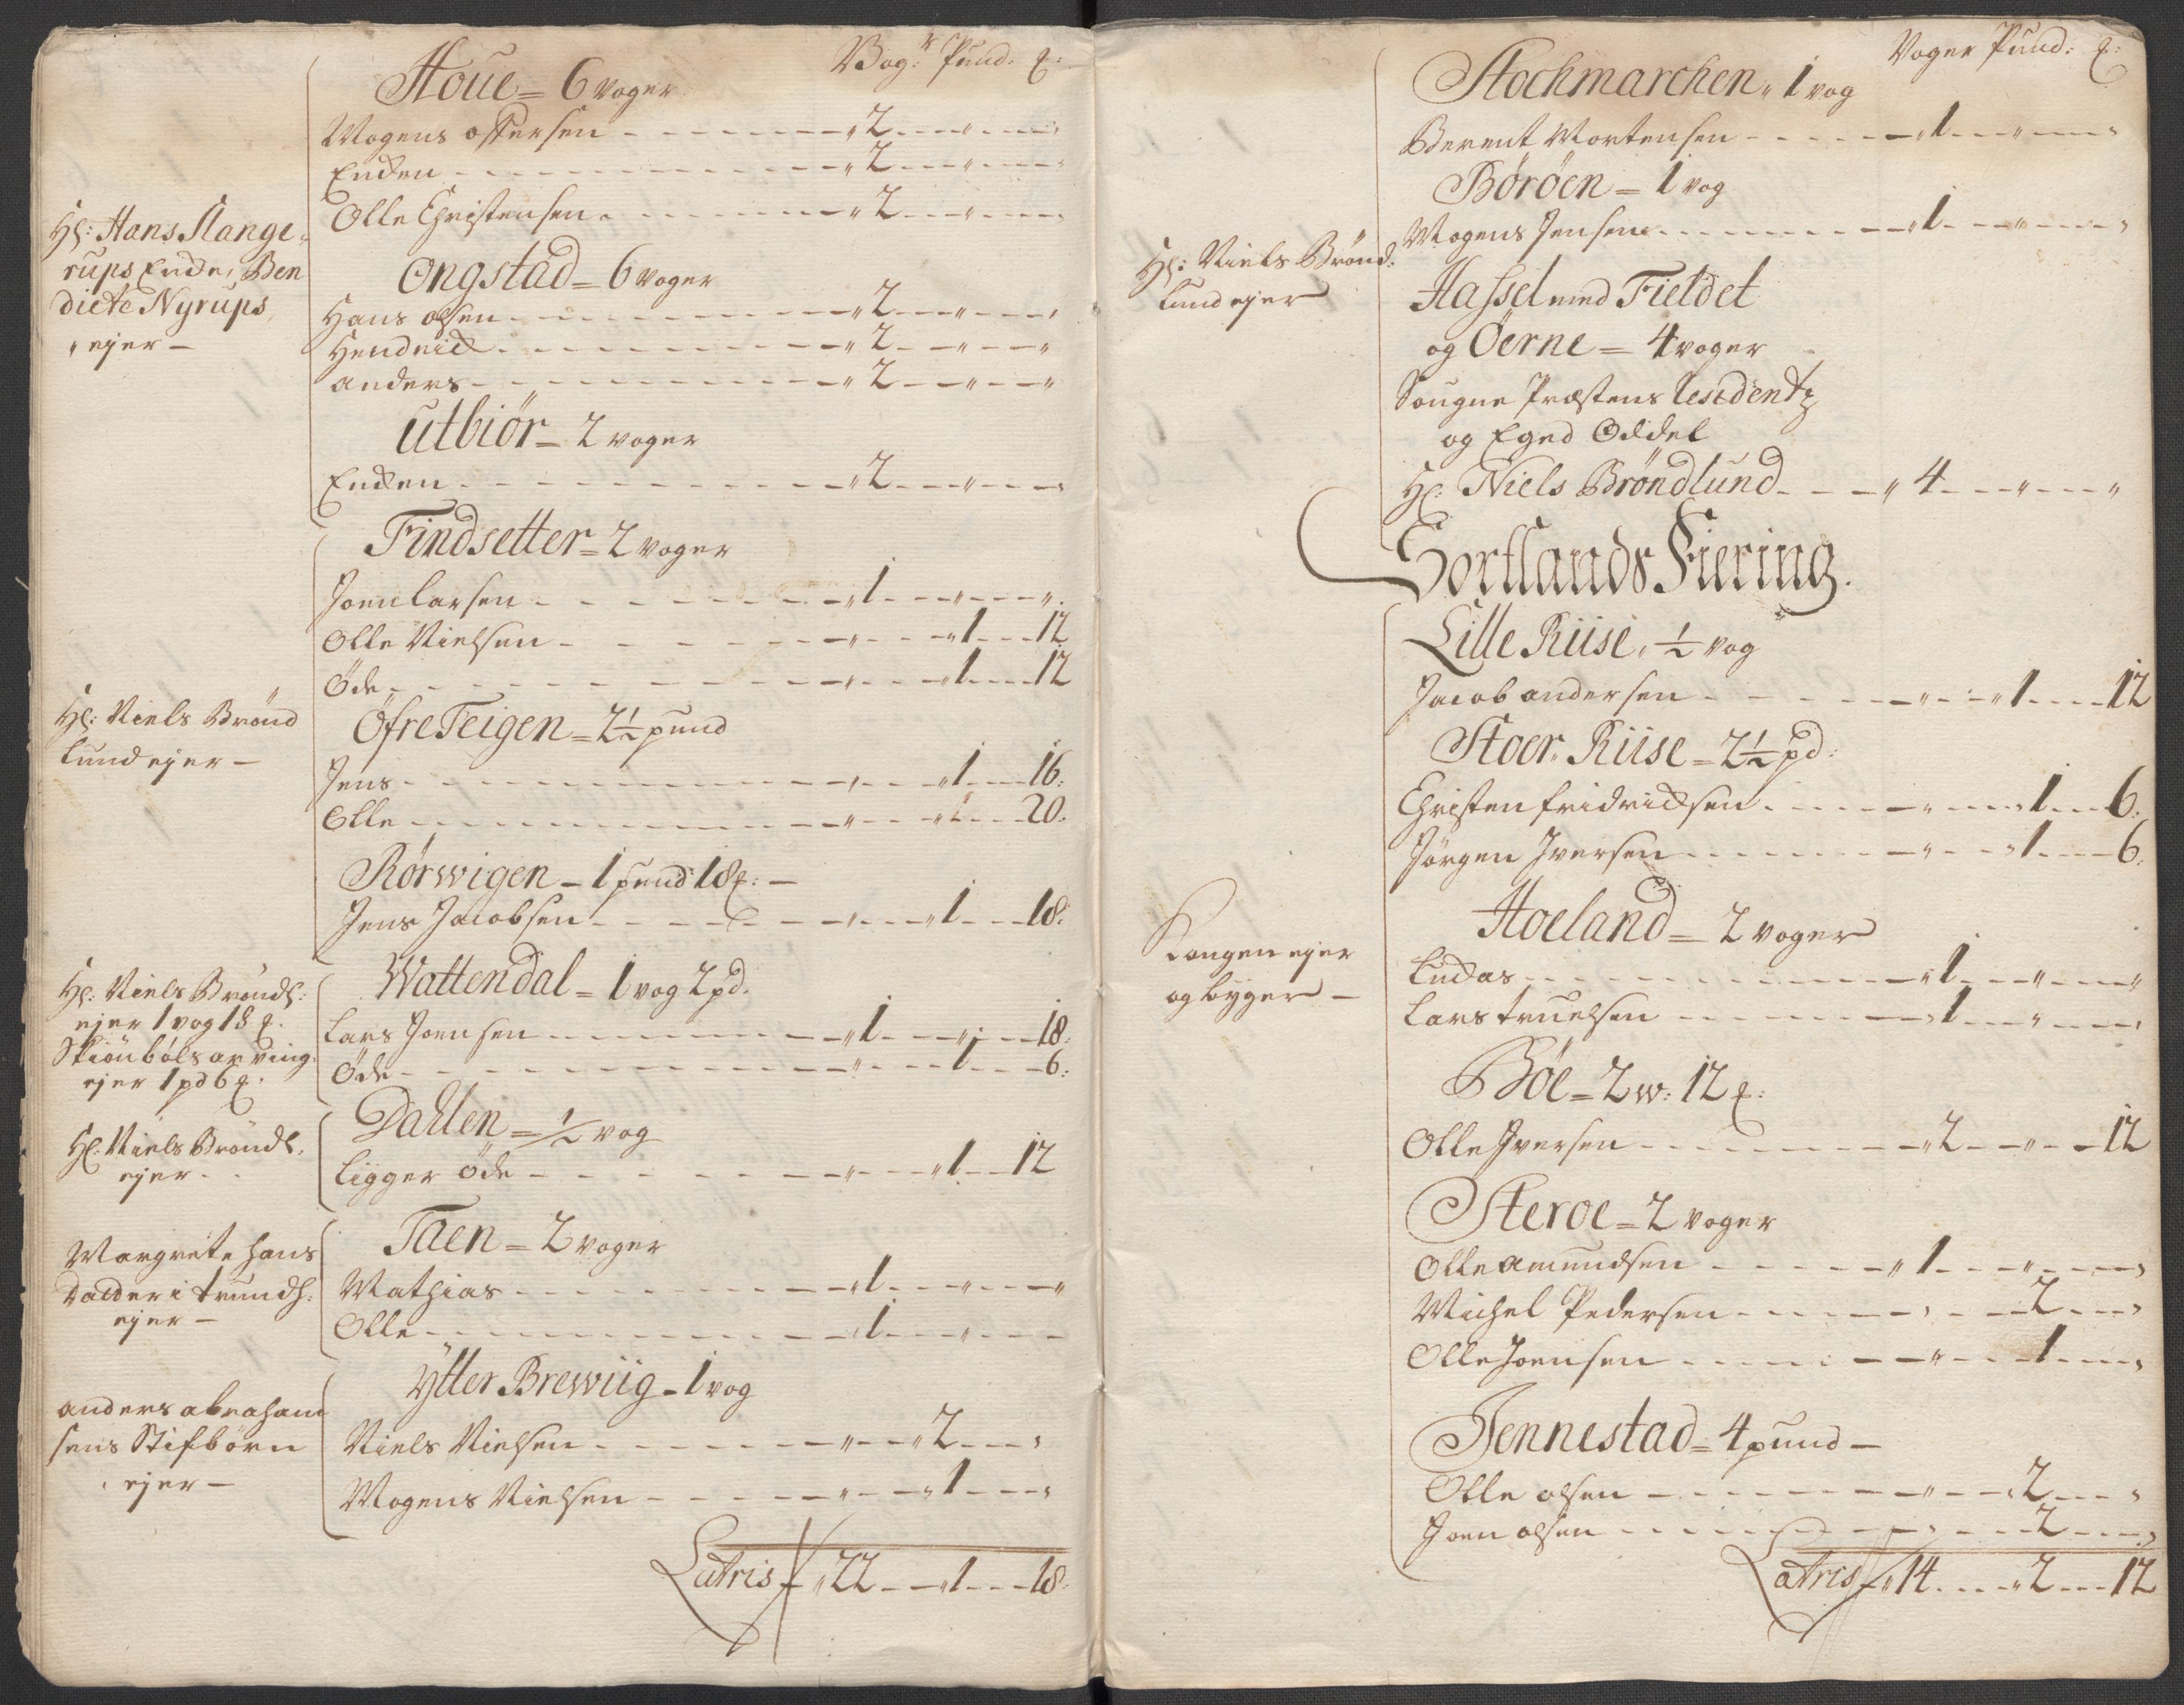 Wog:r Pund. ℔:
Houe = 6 woger
Mogens ossersen - - - " 2 - - " - - "
Enden - - - " 2 - - " - - "
Olle Christensen - - - " 2 - - " - - "
Hl: Hans Slange-
rups Encke, Ben
dicte Nyrups
ejer -
Ongstad = 6 woger
Hans olsen - - - " 2 - - " - - "
Hendrick - - - " 2 - - " - - "
anders - - - " 2 - - " - - "
Utbiör = 2 woger
Encken - - - " 2 - - " - - "
Findsetter = 2 woger
Joen Larsen - - - " 1 - - " - - "
Olle Nielsen - - - " - - " 1 - - 12
Öde - - - " - - " 1 - - 12
Hl: Niels Brönd
lund ejer -
Öfre Teigen = 2½ pund
Jens - - - " - - " 1 - - 16:
Olle - - - " - - " 1 - - 20.
Rörwigen - 1 pund 18 ℔: -
Jens Jacobsen - - - " - - " 1 - - 18.
Hl: Niels Bröndl:
ejer 1 wog 18 ℔.
Skiönböls arving:
ejer 1 pd 6 ℔.
Wattendal = 1 wog 2 pd.
Lars Joensen - - - " 1 - - " - - 18.
Öde - - - " - - " 1 - - 6:
Hl: Niels Bröndl.
ejer -
Dahlen = ½ wog
Ligger öde - - - " - - " 1 - - 12
Margrete Hans
Datter i Trundh:
ejer -
Taen = 2 woger
Mathias - - - " 1 - - " - - "
Olle - - - " 1 - - " - - -
anders abraham
sens Stifbörn
ejer -
Ytter Brewiig - 1 wog
Niels Nielsen - - - " - - " 2 - - "
Mogens Nielsen - - - " - - " 1 - - "
Latris " 22 - - " 1 - - 18.
Woger Pund: ℔:
Stochmarchen. 1 wog
Berent Mortensen - - - " 1 - - " - - "
Böröen = 1 wog
Mogens Jensen - - - " 1 - - " - - "
Hl: Niels Brönd:
lund ejer
Hassel med Fieldet
og Öerne = 4 woger
Sougne Præstens Residentz
og Eged Oddel
Hl: Niels Bröndlund - - - " 4 - - " - - "
Sortlands Fiering.
Lille Riise, ½ wog
Jacob andersen - - - " - - " 1 - - 12
Stoer Riise = 2½ pd:
Christen fridricksen - - - " - - " 1 - - 6.
Jörgen Iversen - - - " - - " 1 - - 6.
Kongen ejer
og byger -
Hoeland = 2 woger
Luckas - - - " 1 - - " - - "
Lars truelsen - - - " 1 - - " - - "
Böe = 2 w: 12 ℔:
Olle Iversen - - - " 2 - - " - - 12
Steroe = 2 woger
Olle amundsen - - - " 1 - - " - - "
Michel Pedersen - - - " - - 2 - - "
Olle Joensen - - - " - - 1 - - "
Jennestad = 4 pund -
Olle olsen - - - " - - " 2 - - "
Joen olsen - - - " - - 2 - - "
Latris " 14 - - " 2 - - 12